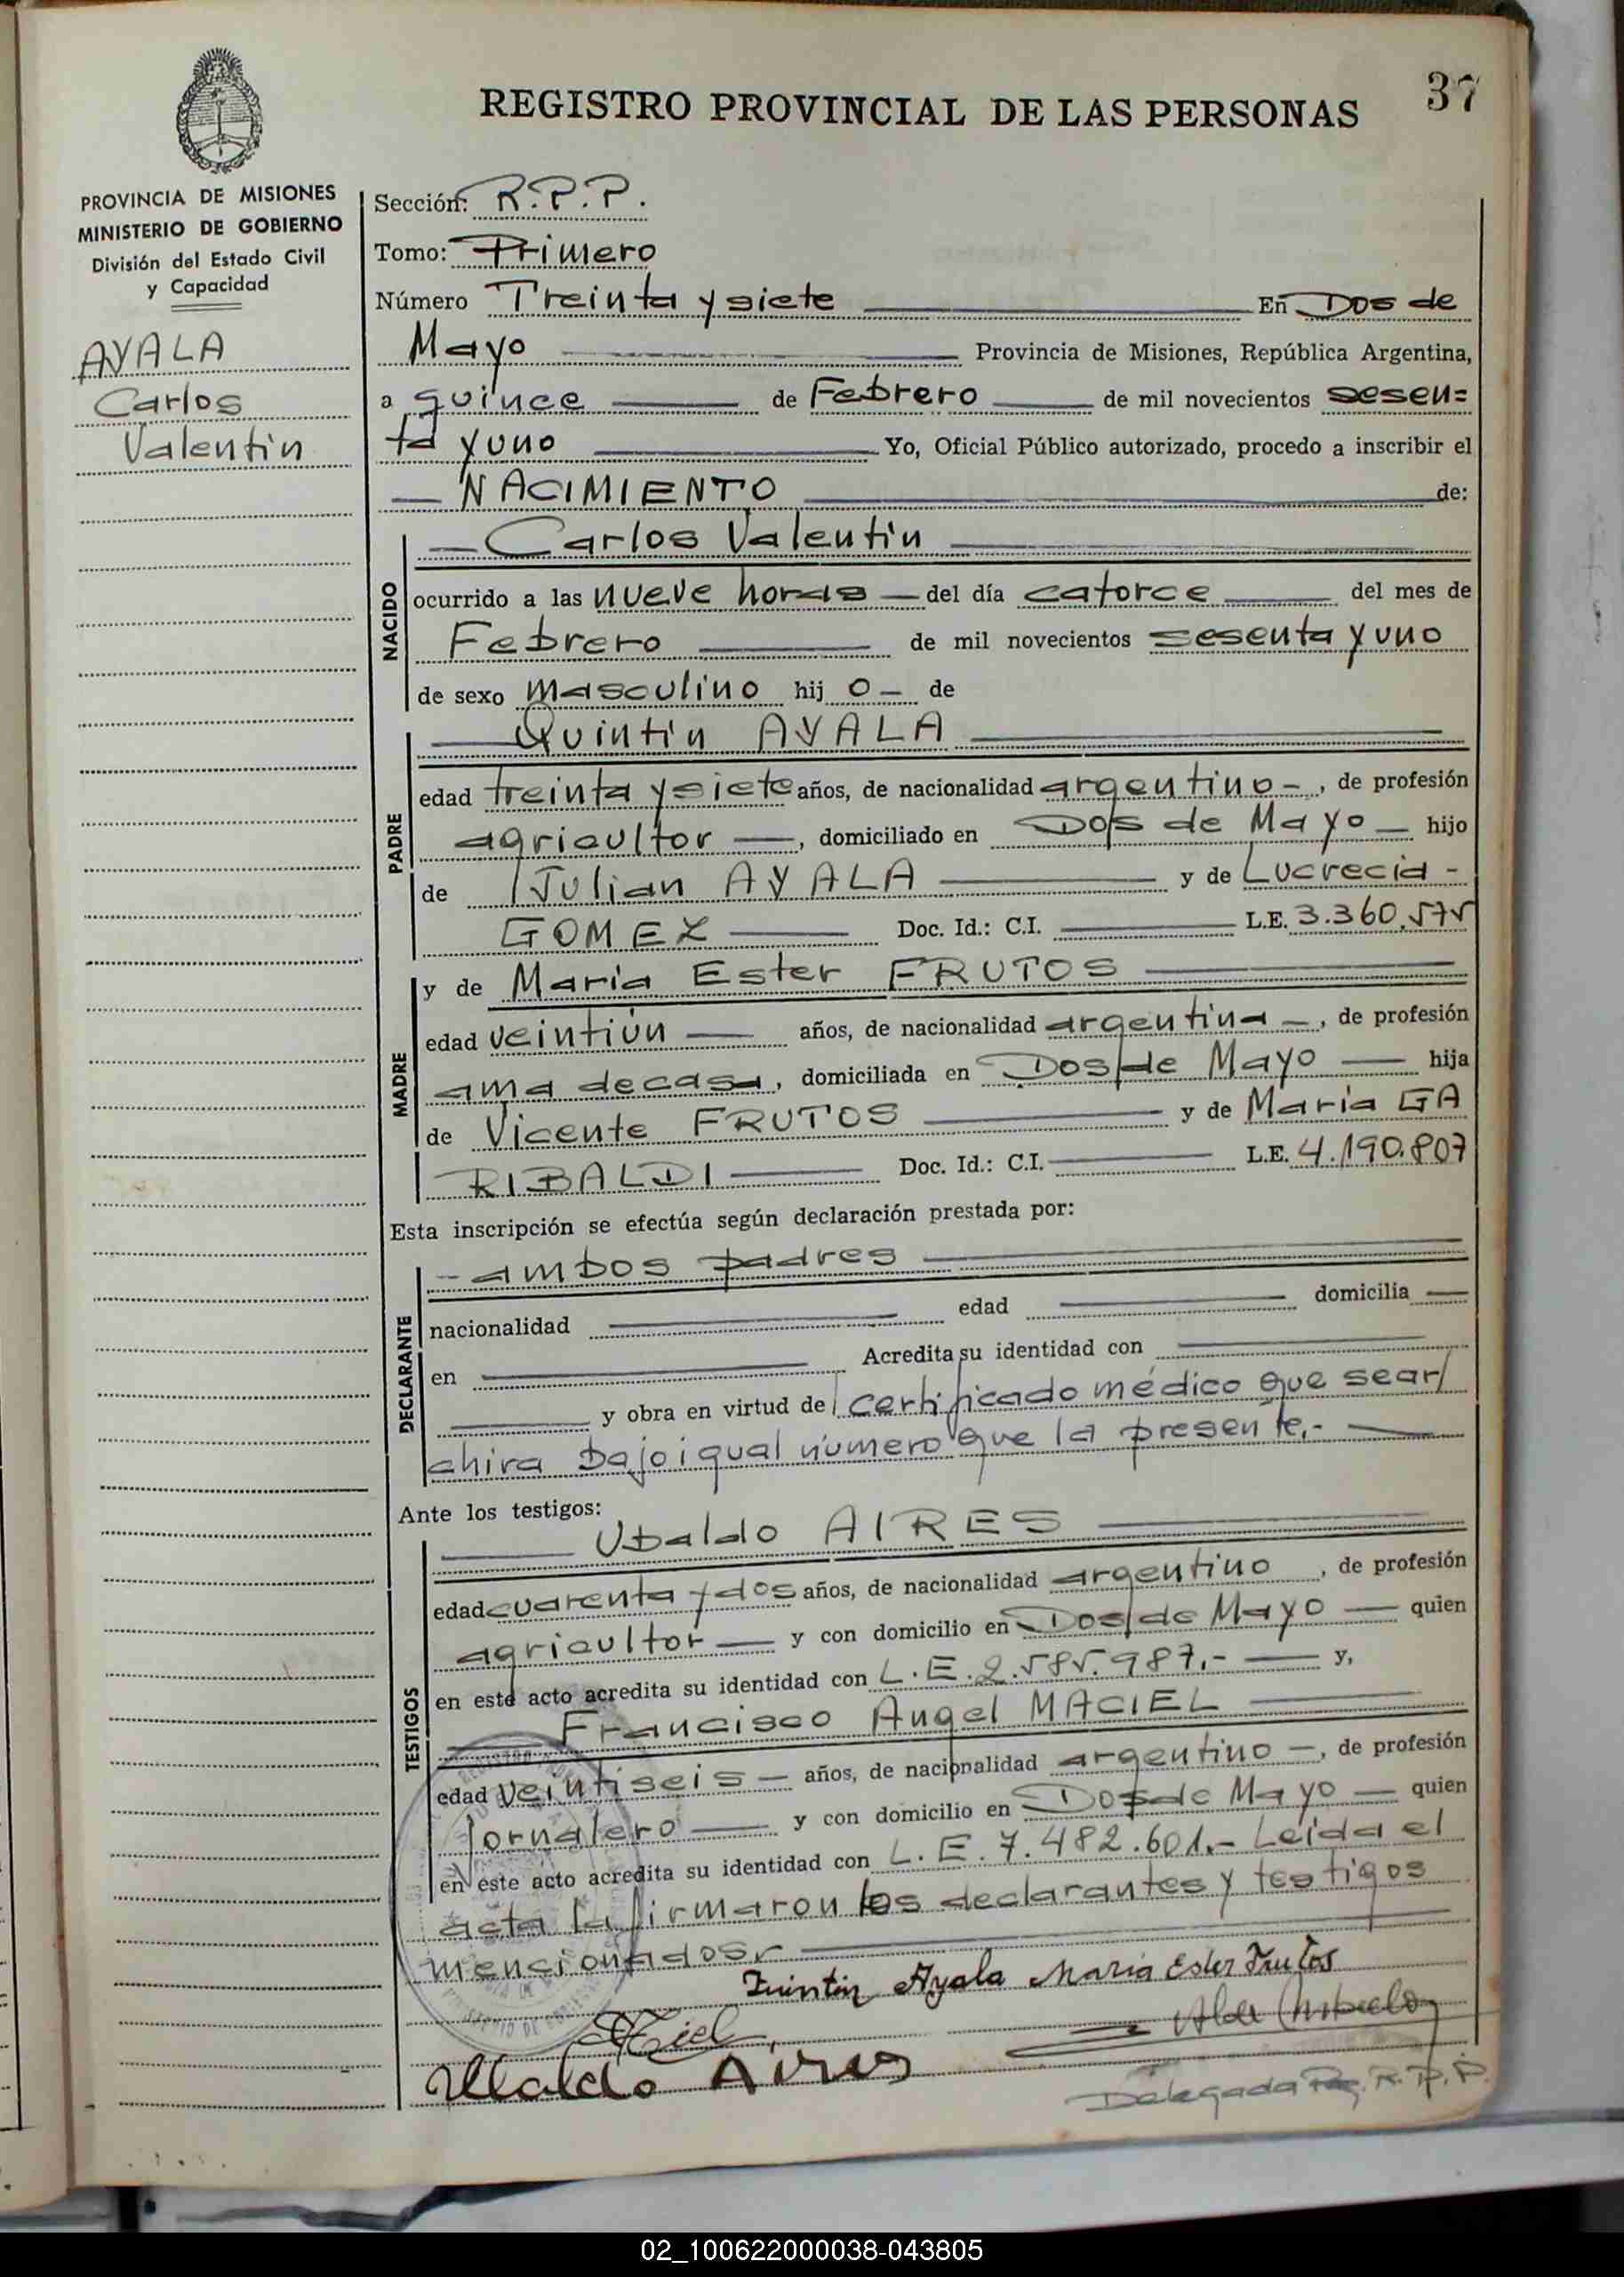 37
REGISTRO PROVINCIAL DE LAS PERSONAS
PROVINCIA DE MISIONES
MINISTERIO DE GOBIERNO
División del Estado Civil
y Capacidad
AYALA
Carlos
Valentin
Sección: R.P.P.
Tomo: Primero
Número Treinta y siete En Dos de
Mayo Provincia de Misiones, República Argentina,
a quince de Febrero de mil novecientos sesen=
ta y uno Yo, Oficial Público autorizado, procedo a inscribir el
NACIMIENTO de:
NACIDO
Carlos Valentin
ocurrido a las nueve horas del día catorce del mes de
Febrero de mil novecientos sesenta y uno
de sexo masculino hij o de
PADRE
Quintin AYALA
edad treinta y siete años, de nacionalidad argentino, de profesión
agricultor, domiciliado en Dos de Mayo hijo
de Julian AYALA y de Lucrecia
GOMEZ Doc. Id.: C.I. L.E. 3.360.575
MADRE
y de Maria Ester FRUTOS
edad veintiún años, de nacionalidad argentina, de profesión
ama de casa, domiciliada en Dos de Mayo hija
de Vicente FRUTOS y de Maria GA
RIBALDI Doc. Id.: C.I. L.E. 4.190.807
Esta inscripción se efectúa según declaración prestada por:
DECLARANTE
ambos padres
nacionalidad edad domicilia
en Acredita su identidad con
y obra en virtud de certificado médico que se ar/
chiva bajo igual número que la presente.-
Ante los testigos:
TESTIGOS
Ubaldo AIRES
edad cuarenta y dos años, de nacionalidad argentino, de profesión
agricultor y con domicilio en Dos de Mayo quien
en este acto acredita su identidad con L.E. 2.585.987.- y,
Francisco Angel MACIEL
edad veintiseis años, de nacionalidad argentino, de profesión
jornalero y con domicilio en Dos de Mayo quien
en este acto acredita su identidad con L.E. 7.482.601.- Leida el
acta la firmaron los declarantes y testigos
mencionados.
Quintin Ayala Maria Ester Frutos
Ubaldo Aires
Delegada R.P.P.
02_100622000038-043805